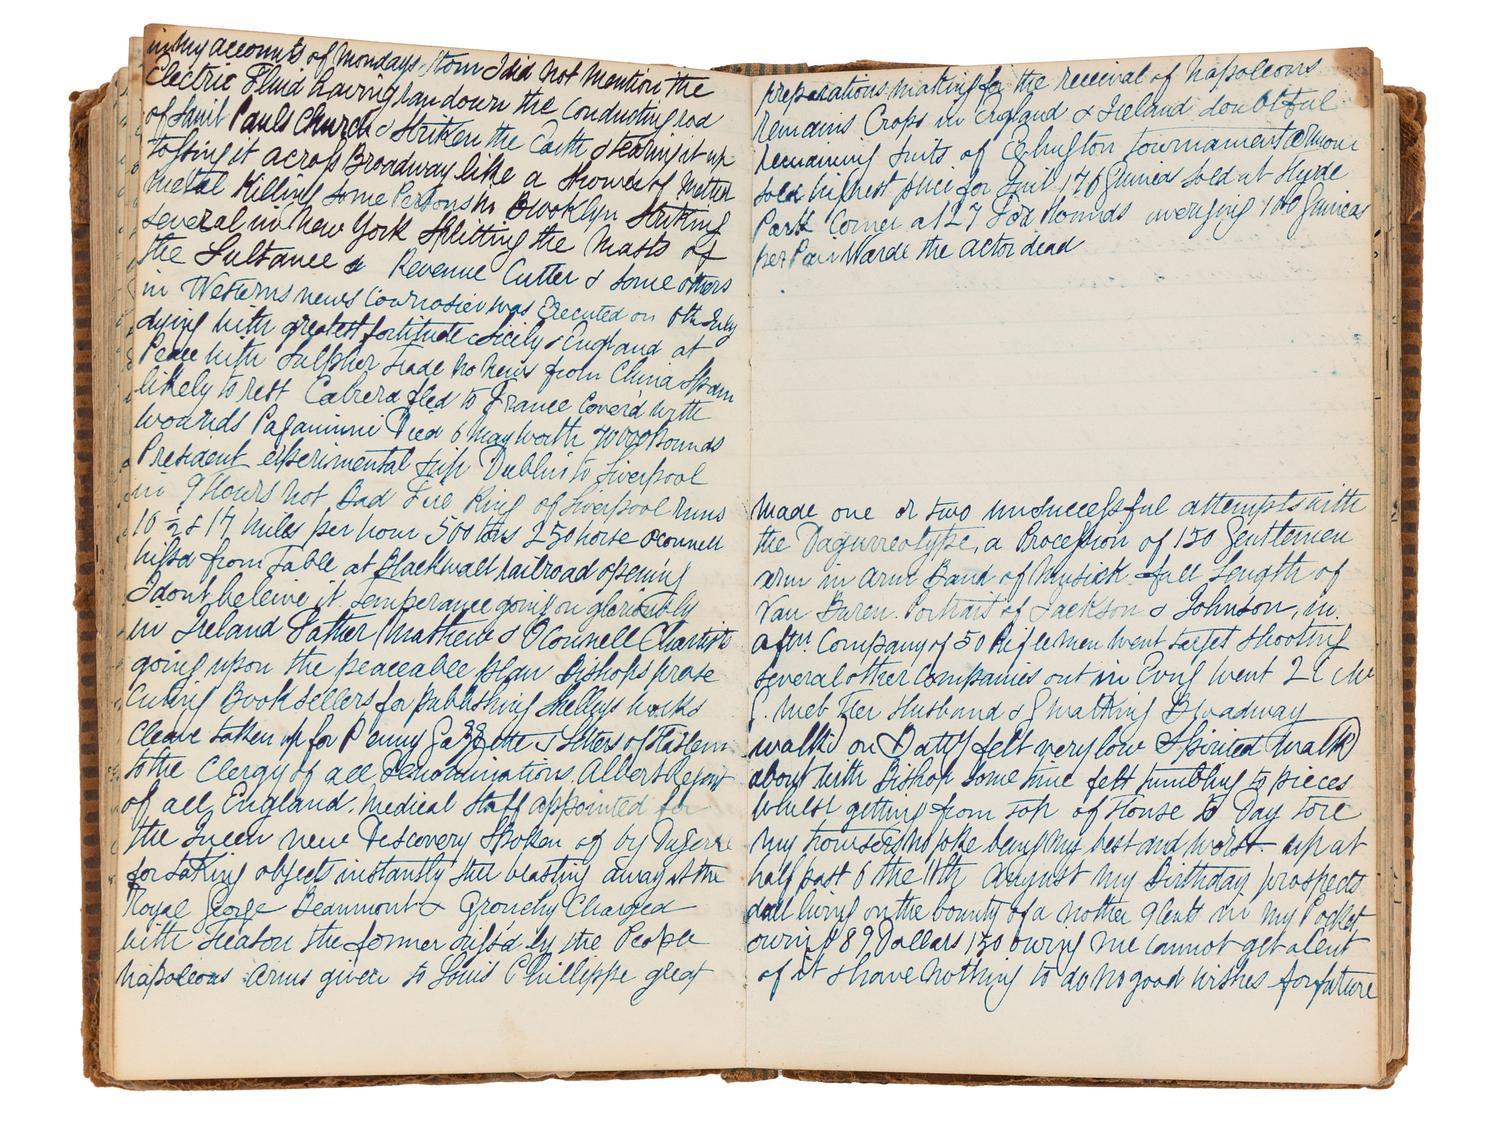 in my accounts of Mondays Storm I did not mention the
Electric Fluid having ran down the Conducting rod
of Saint Pauls Church & Striken the Earth & tearing it up
tossing it across Broadway like a Shower of
metal Killing some Persons in Brooklyn Striking
several in New York Splitting the Masts of
the Sultance a Revenue Cutter & some others
in Westerns news Courvosier was Executed on 6th July
dying with greatest fortitude Sicily & England at
Peace with Sulpher Trade no News from China Spain
likely to rest Cabrera fled to France Cover'd with
wounds Paganinni Died 6 May worth Pounds
President experimental trip Dublin to Liverpool
in 9 Hours not Bad Fire King of Liverpool runs
16 ½ & 17 Miles per hour 500 tons 250 horse Oconnell
hissd from Table at Blackwall railroad opening
I dont beleive it temperance going on gloriously
in Ireland Father Mathew & O'Connell Chartists
going upon the peaceable plan Bishops prose
cuting Booksellers for publishing Shellys works
Cleave taken up for Penny Gazette & letters of Haslem
to the Clergy of all Denominations. Albert Regent
of all England. Medical Staff appointed for
the Queen new Discovery Spoken of by Dagerre
for taking objects instantly Still blasting away at the
Royal George Beaumont & Grouchy Charged
with Treason the former by the People
Napoleons Arms given to Louis Phillippe great
preparations making for the receival of Napoleons
remains Crops in England & Ireland doubtful
remaining Suits of Eglington tournament armour
sold highest price for Suit 176 Guineas Sold at Hyde
Park Corner a 127 Fox Hounds averaging Guineas
per Pair Warde the actor dead
made one or two unsuccessful attempts with
the Daguerreotype, a Procession of 150 Gentlemen
arm in arm Band of Musick full Length of
Van Buren. Portrait of Jackson & Johnson, in
aftn. Company of 50 Riflemen went target shooting
several other Companies out in Evng went 2 C Mc
C. Meb Her Husband & walking Broadway
walkd on Batty felt very low Spirited Walk
about with Bishop some time felt tumbling to pieces
Whilst getting from top of House to Day tore
my trousers no joke being my best and worst up at
half past 6 the 11th August My Birthday prospects
dull living on the bounty of a nother 9 Cents in my Pocket
owing 89 Dollars 150 owing me cannot get a Cent
of it & have nothing to do no good wishes for future